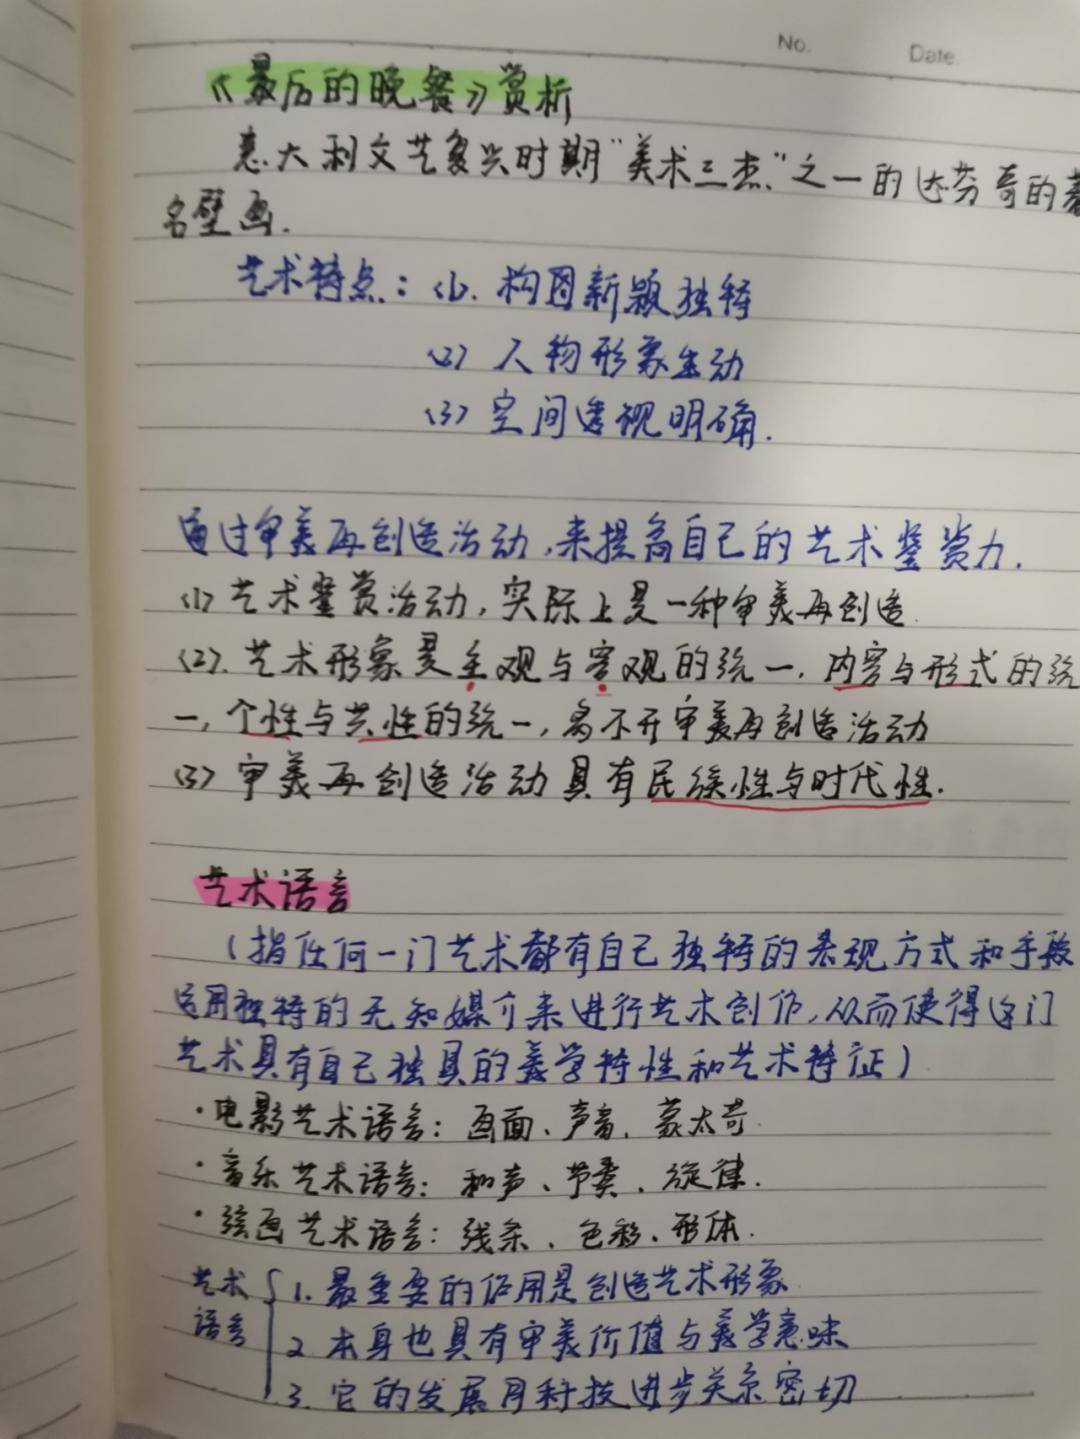 No.
Date.
《最后的晚餐》赏析
意大利文艺复兴时期“美术三杰”之一的达芬奇的著
名壁画.
艺术特点：(1). 构图新颖独特
(2) 人物形象生动
(3) 空间透视明确.
通过审美再创造活动,来提高自己的艺术鉴赏力.
(1) 艺术鉴赏活动,实际上是一种审美再创造.
(2). 艺术形象是主观与客观的统一,内容与形式的统
一,个性与共性的统一,离不开审美再创造活动
(3) 审美再创造活动具有民族性与时代性.
艺术语言
(指任何一门艺术都有自己独特的表现方式和手段
运用独特的无知媒介来进行艺术创作,从而使得这门
艺术具有自己独具的美学特性和艺术特征)
·电影艺术语言：画面、声音、蒙太奇.
·音乐艺术语言：和声、节奏、旋律.
·绘画艺术语言：线条、色彩、形体.
艺术语言
1. 最重要的作用是创造艺术形象
2. 本身也具有审美价值与美学意味
3. 它的发展用科技进步关系密切